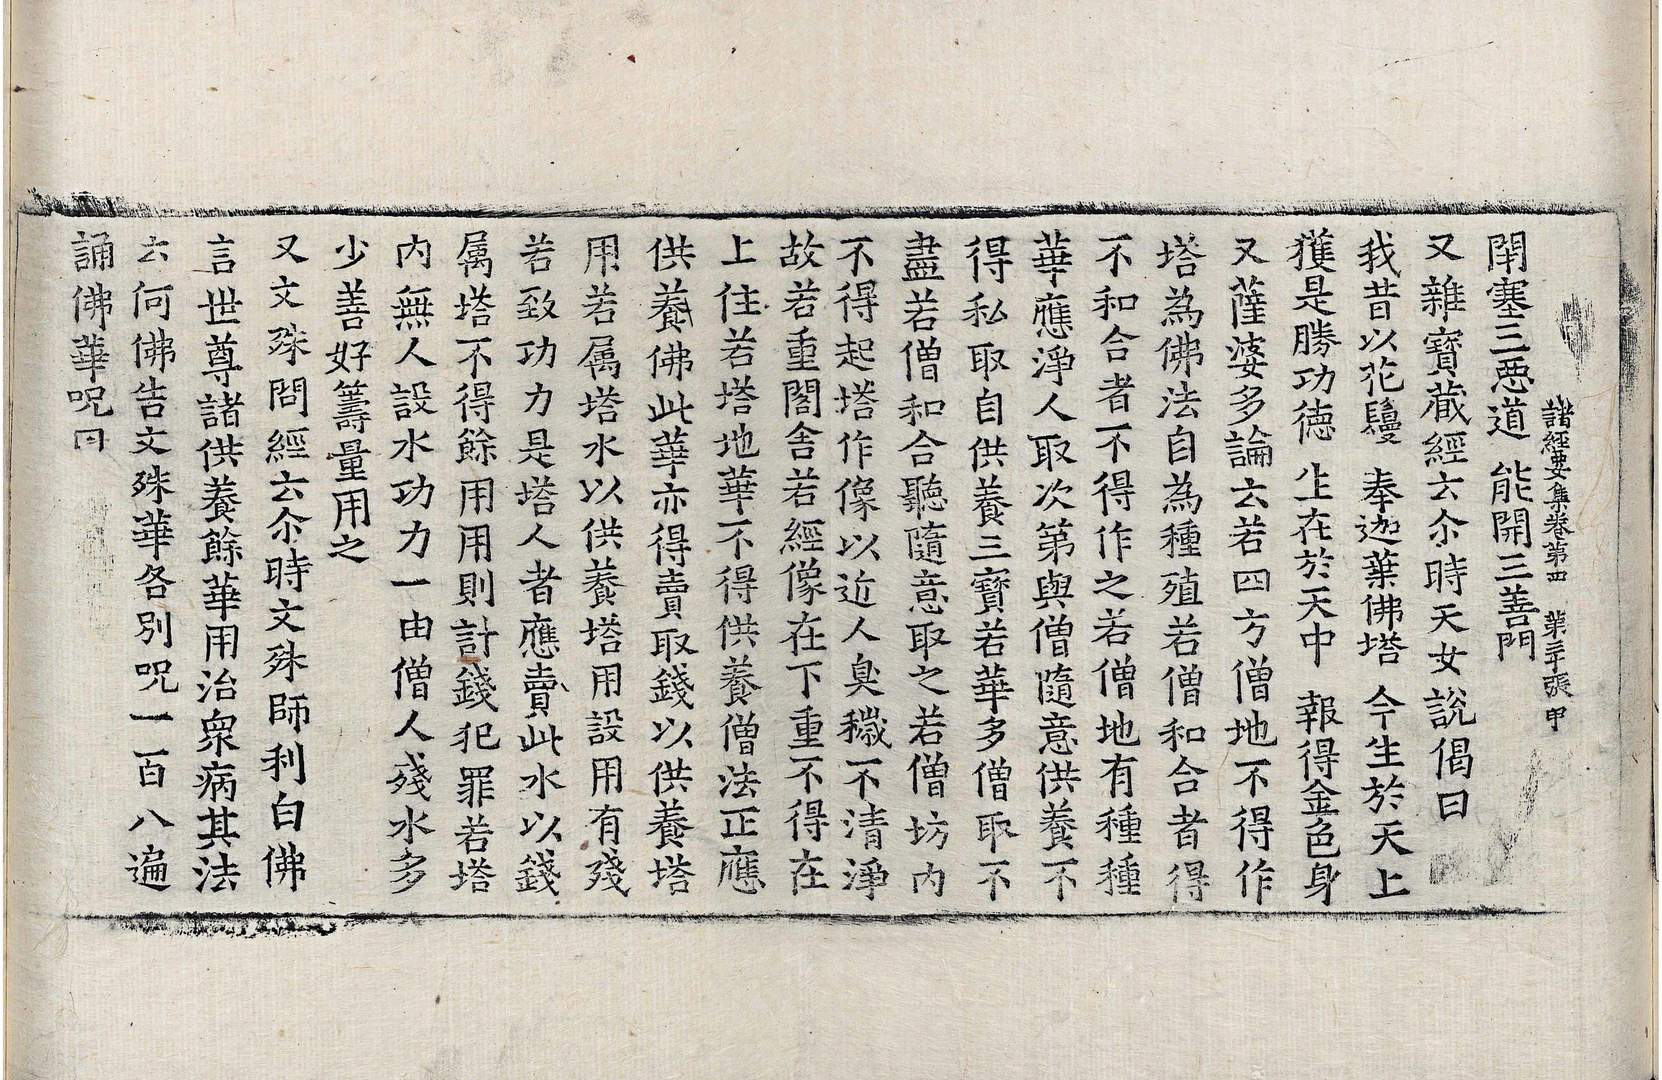 諸經要集卷第四　第三十張　甲
閇塞三惡道　能開三善門
又雜寶藏經云尒時天女說偈曰
我昔以花鬘　奉迦葉佛塔　今生於天上
獲是勝功德　生在於天中　報得金色身
又薩婆多論云若四方僧地不得作
塔為佛法自為種殖若僧和合者得
不和合者不得作之若僧地有種種
華應淨人取次第與僧隨意供養不
得私取自供養三寶若華多僧取不
盡若僧和合聽隨意取之若僧坊內
不得起塔作像以近人臭穢不清淨
故若重閣舍若經像在下重不得在
上住若塔地華不得供養僧法正應
供養佛此華亦得賣取錢以供養塔
用若属塔水以供養塔用設用有殘
若致功力是塔人者應賣此水以錢
属塔不得餘用用則計錢犯罪若塔
內無人設水功力一由僧人殘水多
少善好籌量用之
又文殊問經云尒時文殊師利白佛
言世尊諸供養餘華用治衆病其法
云何佛告文殊華各別呪一百八遍
誦佛華呪曰